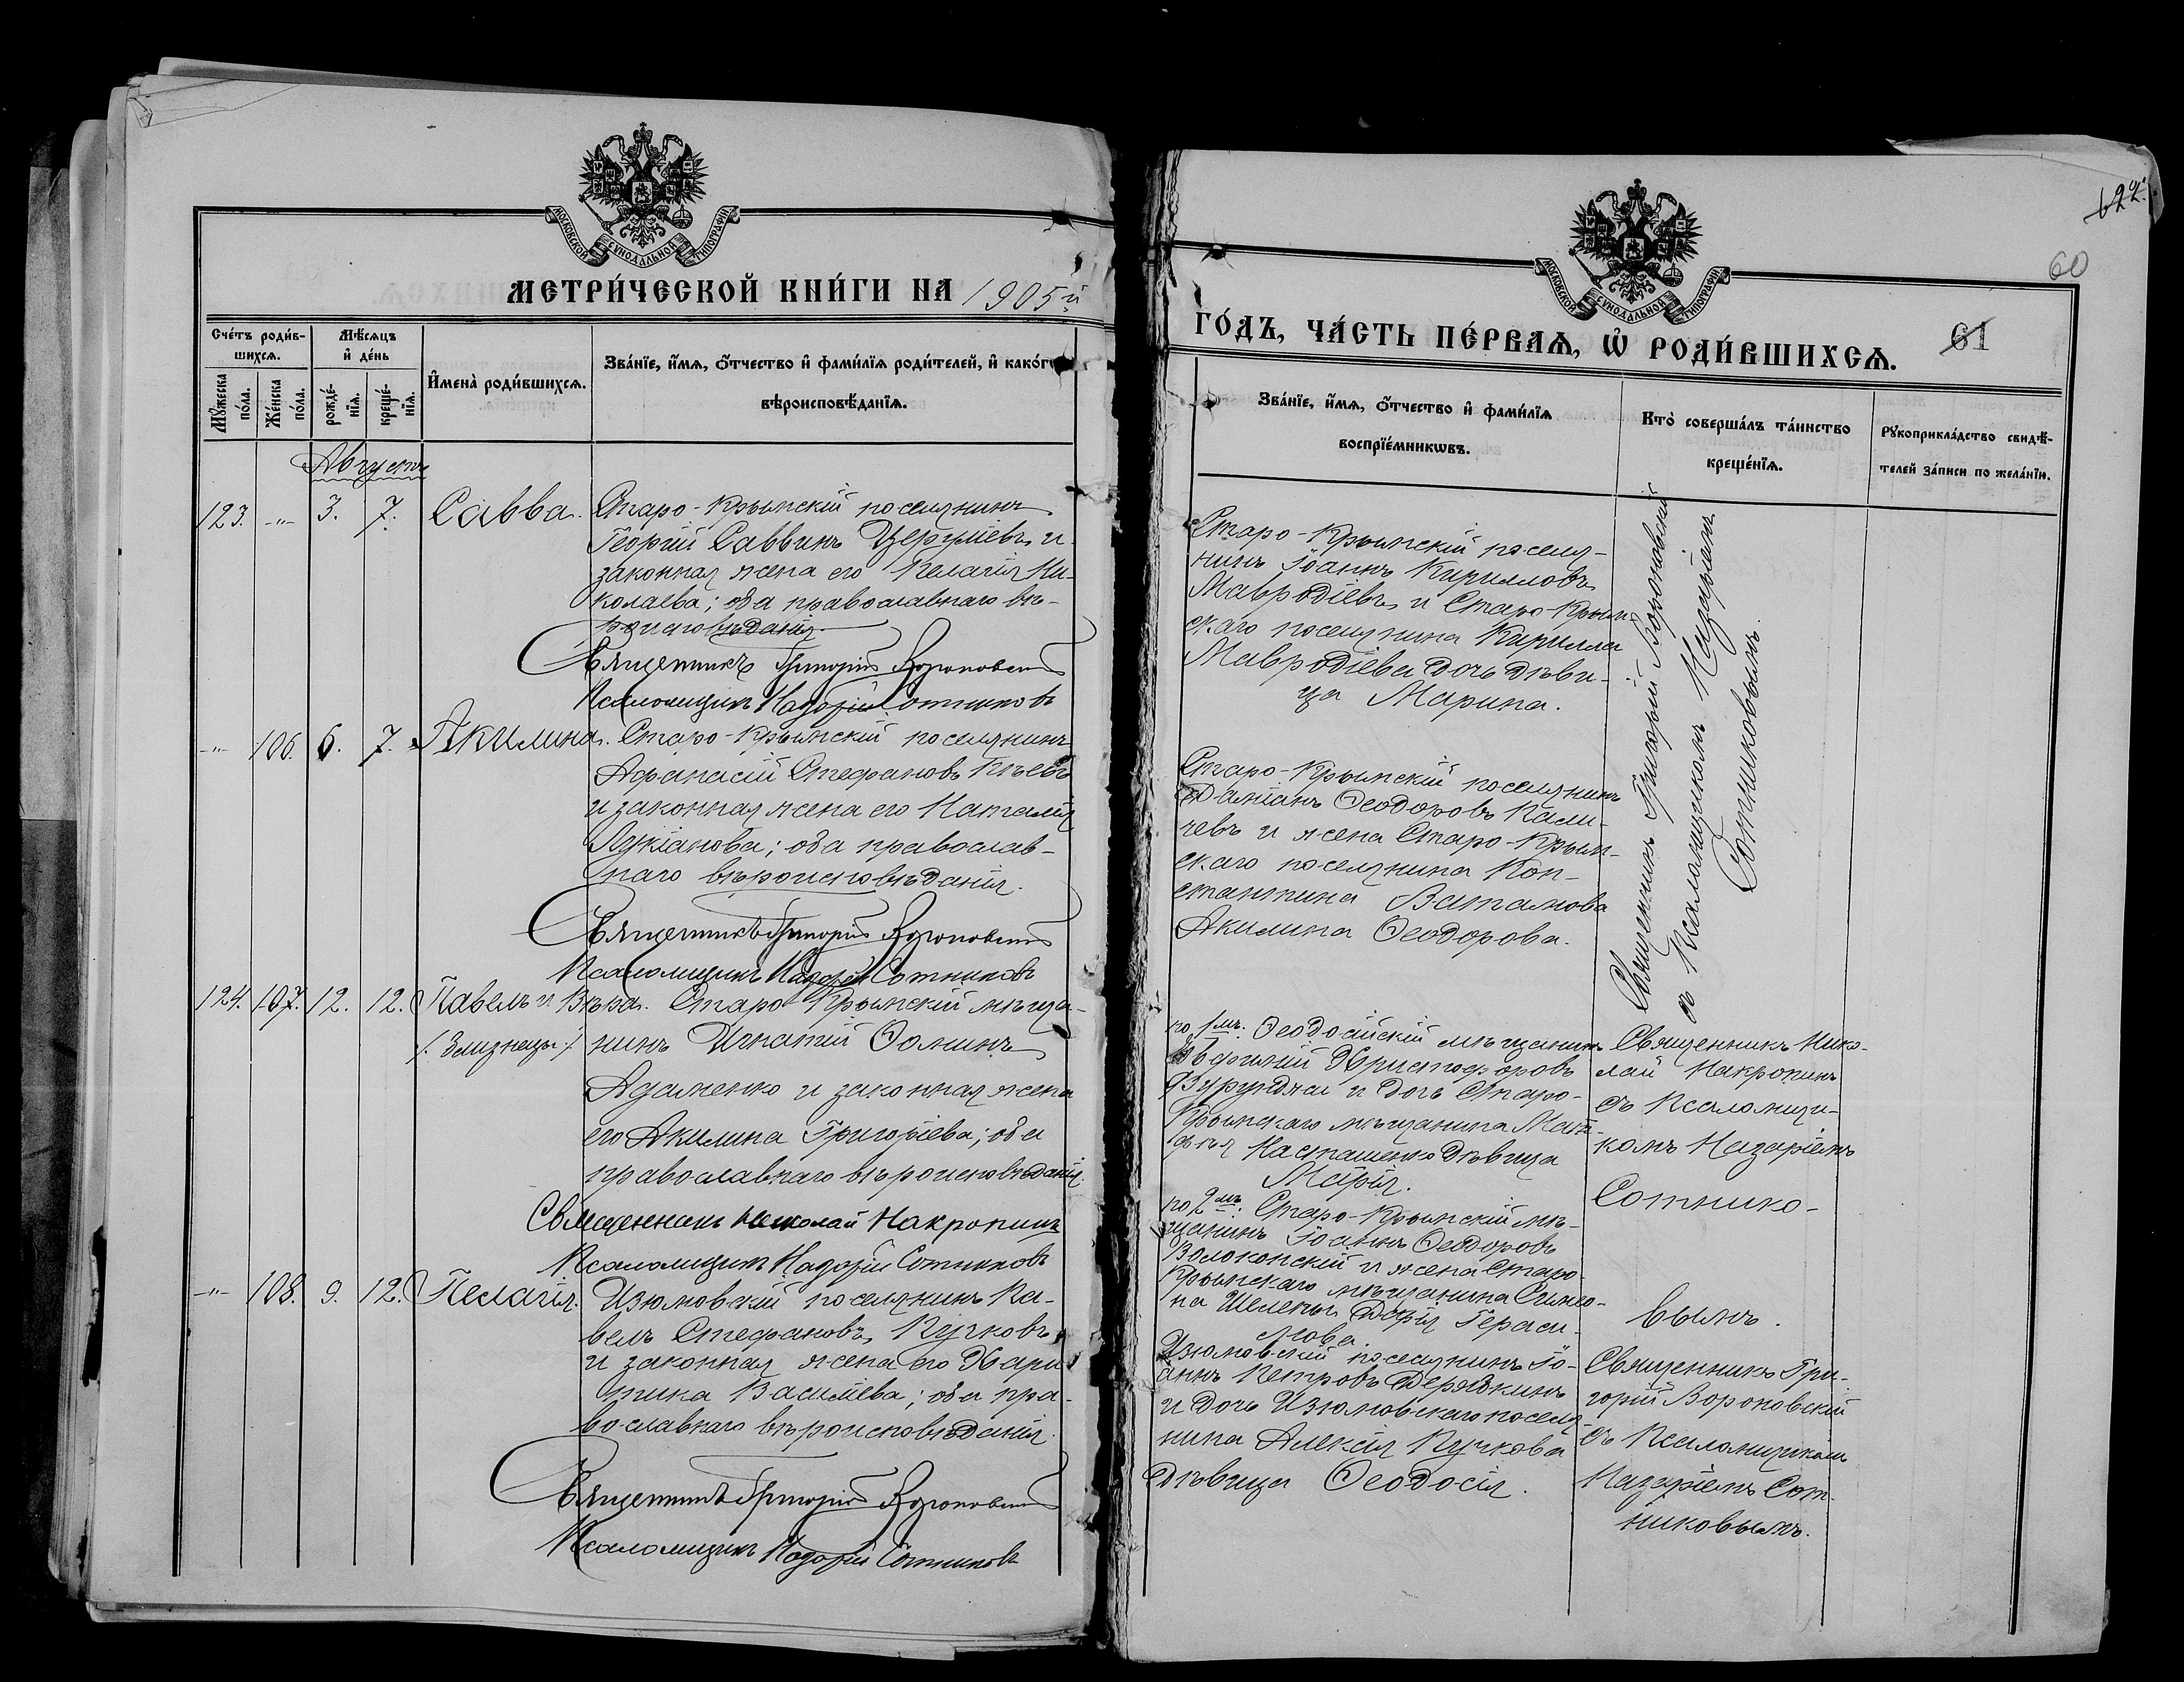 МОСКОВСКОЙ СѴНОДАЛЬНОЙ ТИПОГРАФІИ
МЕТРИ́ЧЕСКОЙ КНИ́ГИ НА 1905й
Сче́тъ роди́в-
шихсѧ.
Мѣ́сѧцъ
и҆ де́нь
Мꙋ́жеска
по́ла.
Же́нска
по́ла.
рожде́-
нїѧ.
креще́-
нїѧ.
И҆мена̀ роди́вшихсѧ.
Зва́нїе, и҆́мѧ, ѻ҆́тчество и҆ фами́лїѧ роди́телей, и҆ како́гѡ
вѣроисповѣ́данїѧ.
Августъ
123. -"- 3. 7. Савва. Старо-Крымскій поселянинъ
Георгій Саввинъ Церуліевъ и
законная жена его Пелагія Ни-
колаева; оба православнаго вѣ-
роисповѣданія.
Священникъ Григорій Вороновскій
Псаломщикъ Назарій Сотниковъ
-"- 106. 6. 7. Акилина. Старо-Крымскій поселянинъ
Афанасій Стефановъ
и законная жена его Наталія
Лукіанова; оба православ-
наго вѣроисповѣданія.
Священникъ Григорій Вороновскій
Псаломщикъ Назарій Сотниковъ
124. 107. 12. 12. Павелъ и Вѣра. Старо-Крымскій мѣща-
/. близнецы ./ нинъ Игнатій Ѳоминъ
Адаменко и законная жена
его Акилина Григоріева; оба
православнаго вѣроисповѣданія.
Священникъ Николай Макропинъ
Псаломщикъ Назарій Сотниковъ
-"- 108. 9. 12. Пелагія. Изюмовскій поселянинъ Па-
велъ Стефановъ Пучковъ
и законная жена его Хари-
тина Василіева; оба пра-
вославнаго вѣроисповѣданія.
Священникъ Григорій Вороновскій
Псаломщикъ Назарій Сотниковъ
622.
60
61
МОСКОВСКОЙ СѴНОДАЛЬНОЙ ТИПОГРАФІИ
ГО́ДЪ, ЧА́СТЬ ПЕ́РВАѦ, Ѡ҆ РОДИ́ВШИХСѦ.
Зва́нїе, и҆́мѧ, ѻ҆́тчество и҆ фами́лїѧ
воспрїе́мникѡвъ.
Кто̀ соверша́лъ та́инство
креще́нїѧ.
Рꙋкоприкла́дство свидѣ́-
телей за́писи по жела́нїю.
Старо-Крымскій поселя-
нинъ Іоаннъ Кирилловъ
Мавродіевъ и Старо-Крым-
скаго поселянина Кирилла
Мавродіева дочь дѣви-
ца Марина.
Священникъ Григорій Вороновскій
съ Псаломщикомъ Назаріемъ
Сотниковымъ.
Старо-Крымскій поселянинъ
Даміанъ Ѳеодоровъ Кали-
чевъ и жена Старо-Крым-
скаго поселянина Кон-
стантина Ватанова
Акилина Ѳеодорова.
по 1мъ. Ѳеодосійскій мѣщанинъ
Евфимій Христофоровъ
Бурунджи и дочь Старо-
Крымскаго мѣщанина Мат-
фея дѣвица
Марія.
по 2мъ: Старо-Крымскій мѣ-
щанинъ Іоаннъ Ѳеодоровъ
Волоконскій и жена Старо-
Крымскаго мѣщанина Симео-
на Шелепы Дарія Гераси-
мова.
Священникъ Нико-
лай Макропинъ
съ Псаломщи-
комъ Назаріемъ
Сотнико-
вымъ.
Изюмовскій поселянинъ Іо-
аннъ Петровъ Дерявкинъ
и дочь Изюмовскаго поселя-
нина Алексія Пучкова
дѣвица Ѳеодосія.
Священникъ Гри-
горій Вороновскій
съ Псаломщикомъ
Назаріемъ Сот-
никовымъ.